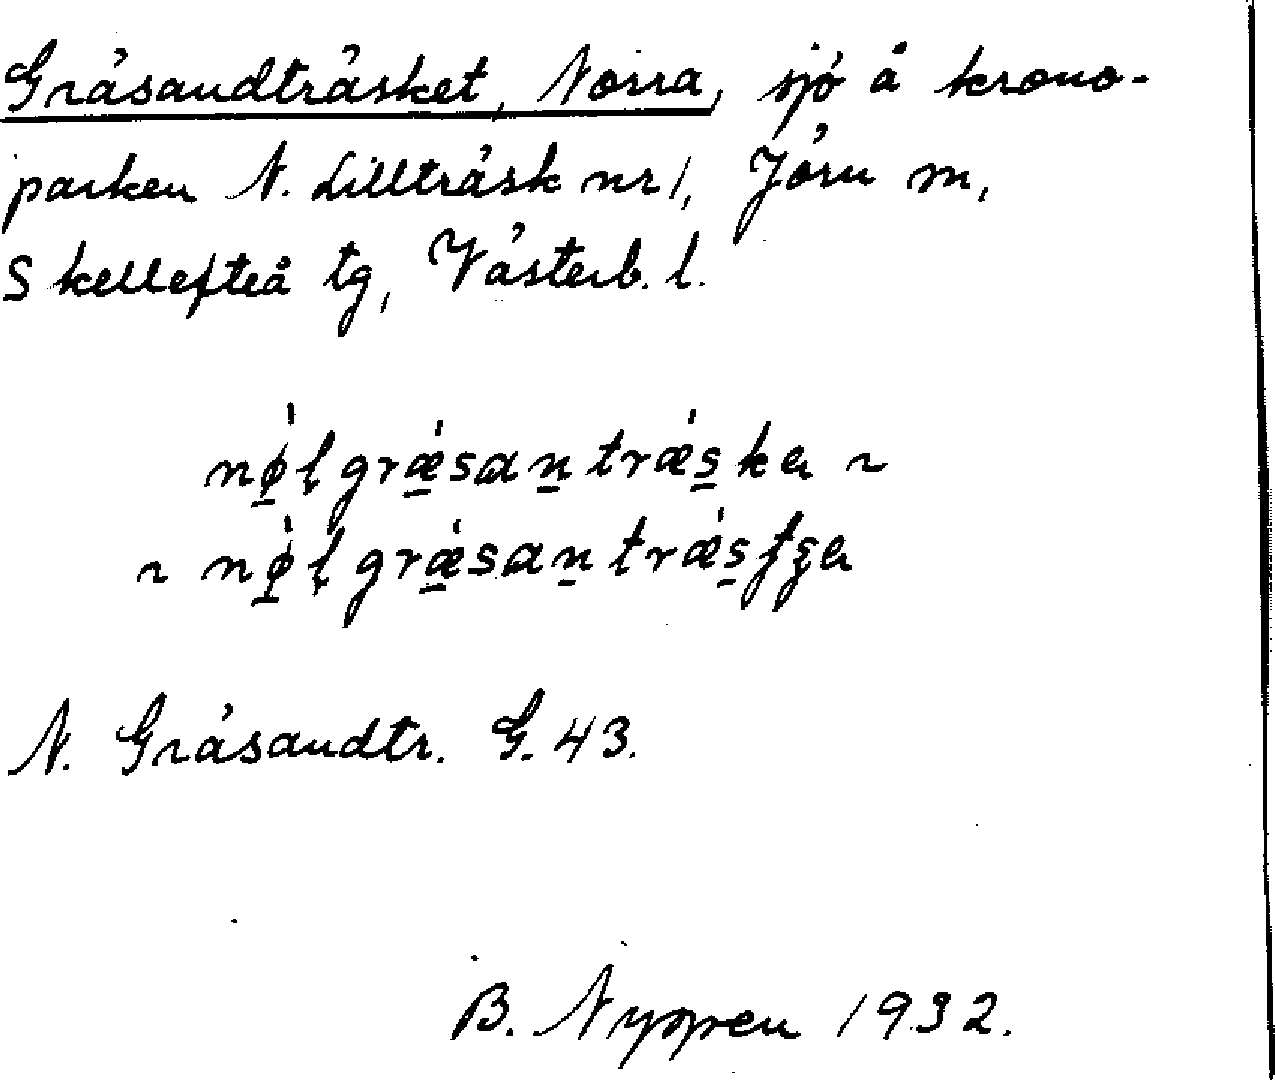 Gräsandträsket, Norra, sjö å krono-
parken N. Lillträsk nr 1, Jörn sn,
Skellefteå tg, Västerb. l.
nǿ̱ḷ grǽ̱san̲ trǽs̲ka ~
~ nǿ̱ḷ grǽ̱san̲ trǽs̲
N. Gräsandtr. G. 43.
B. Nyppen 1932.